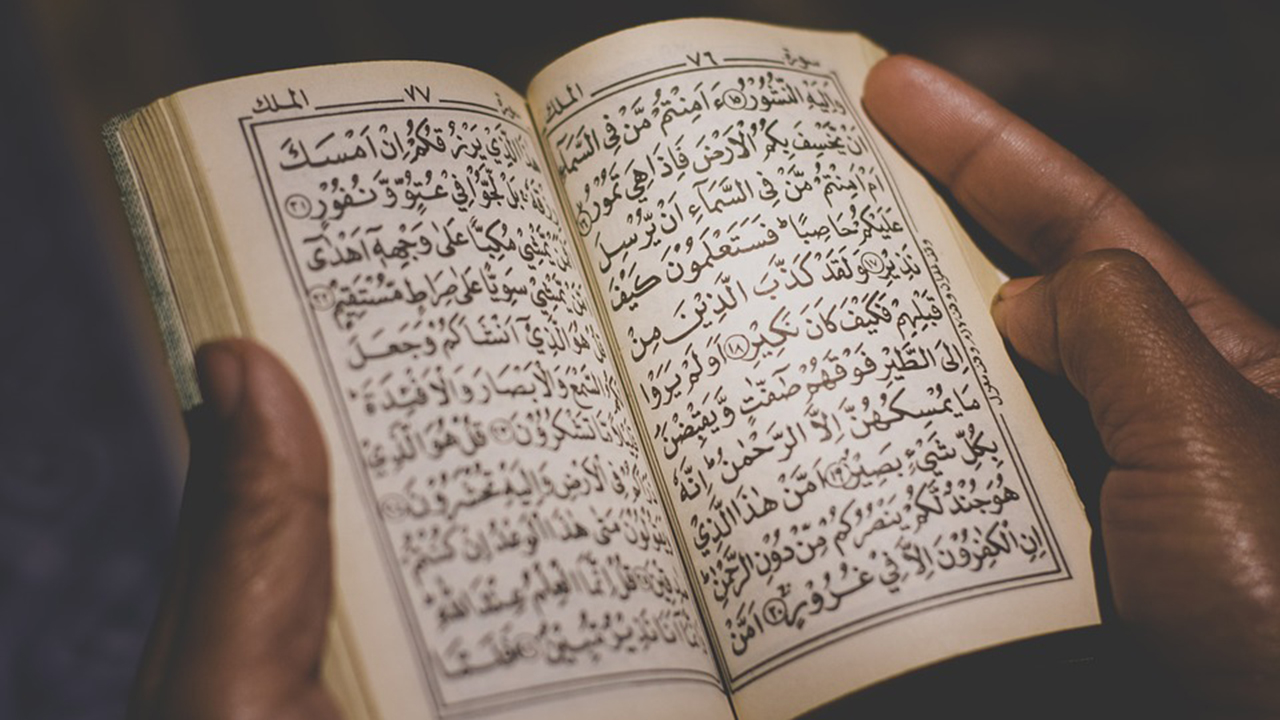 سورة ٧٦ الملك
وَاِلَيْهِ النُّشُوْرُ ⑮ ءَاَمِنْتُمْ مَّنْ فِى السَّمَآءِ
اَنْ يَّخْسِفَ بِكُمُ الْاَرْضَ فَاِذَا هِيَ تَمُوْرُ
اَمْ اَمِنْتُمْ مَّنْ فِى السَّمَآءِ اَنْ يُّرْسِلَ
عَلَيْكُمْ حَاصِبًا ؕ فَسَتَعْلَمُوْنَ كَيْفَ
نَذِيْرِ ١٧ وَلَقَدْ كَذَّبَ الَّذِيْنَ مِنْ
قَبْلِهِمْ فَكَيْفَ كَانَ نَكِيْرِ ١٨ اَوَلَمْ يَرَوْا
اِلَى الطَّيْرِ فَوْقَهُمْ صٰٓفّٰتٍ وَّيَقْبِضْنَ
مَا يُمْسِكُهُنَّ اِلَّا الرَّحْمٰنُ ؕ اِنَّهٗ
بِكُلِّ شَيْءٍۢ بَصِيْرٌ ١٩ اَمَّنْ هٰذَا الَّذِيْ
هُوَ جُنْدٌ لَّكُمْ يَنْصُرُكُمْ مِّنْ دُوْنِ الرَّحْمٰنِ ؕ
اِنِ الْكٰفِرُوْنَ اِلَّا فِيْ غُرُوْرٍ ٢٠ اَمَّنْ
سورة ٧٧ الملك
هٰذَا الَّذِيْ يَرْزُقُكُمْ اِنْ اَمْسَكَ
رِزْقَهٗ ۚ بَلْ لَّجُّوْا فِيْ عُتُوٍّ وَّنُفُوْرٍ ٢١
يَّمْشِيْ مُكِبًّا عَلٰى وَجْهِهٖٓ اَهْدٰٓى
يَّمْشِيْ سَوِيًّا عَلٰى صِرَاطٍ مُّسْتَقِيْمٍ ٢٢
قُلْ هُوَ الَّذِيْٓ اَنْشَاَكُمْ وَجَعَلَ
السَّمْعَ وَالْاَبْصَارَ وَالْاَفْئِدَةَ ؕ
مَّا تَشْكُرُوْنَ ٢٣ قُلْ هُوَ الَّذِيْ
فِى الْاَرْضِ وَاِلَيْهِ تُحْشَرُوْنَ ٢٤
وَيَقُوْلُوْنَ مَتٰى هٰذَا الْوَعْدُ اِنْ كُنْتُمْ
قُلْ اِنَّمَا الْعِلْمُ عِنْدَ اللّٰهِ
اَنَا نَذِيْرٌ مُّبِيْنٌ فَلَمَّا